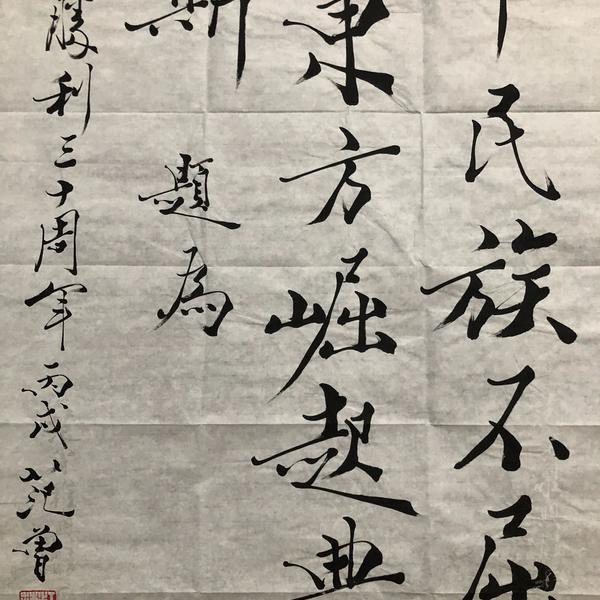 民族不屈
東方崛起典
斯
題為
勝利三十周年 丙戌 范曾